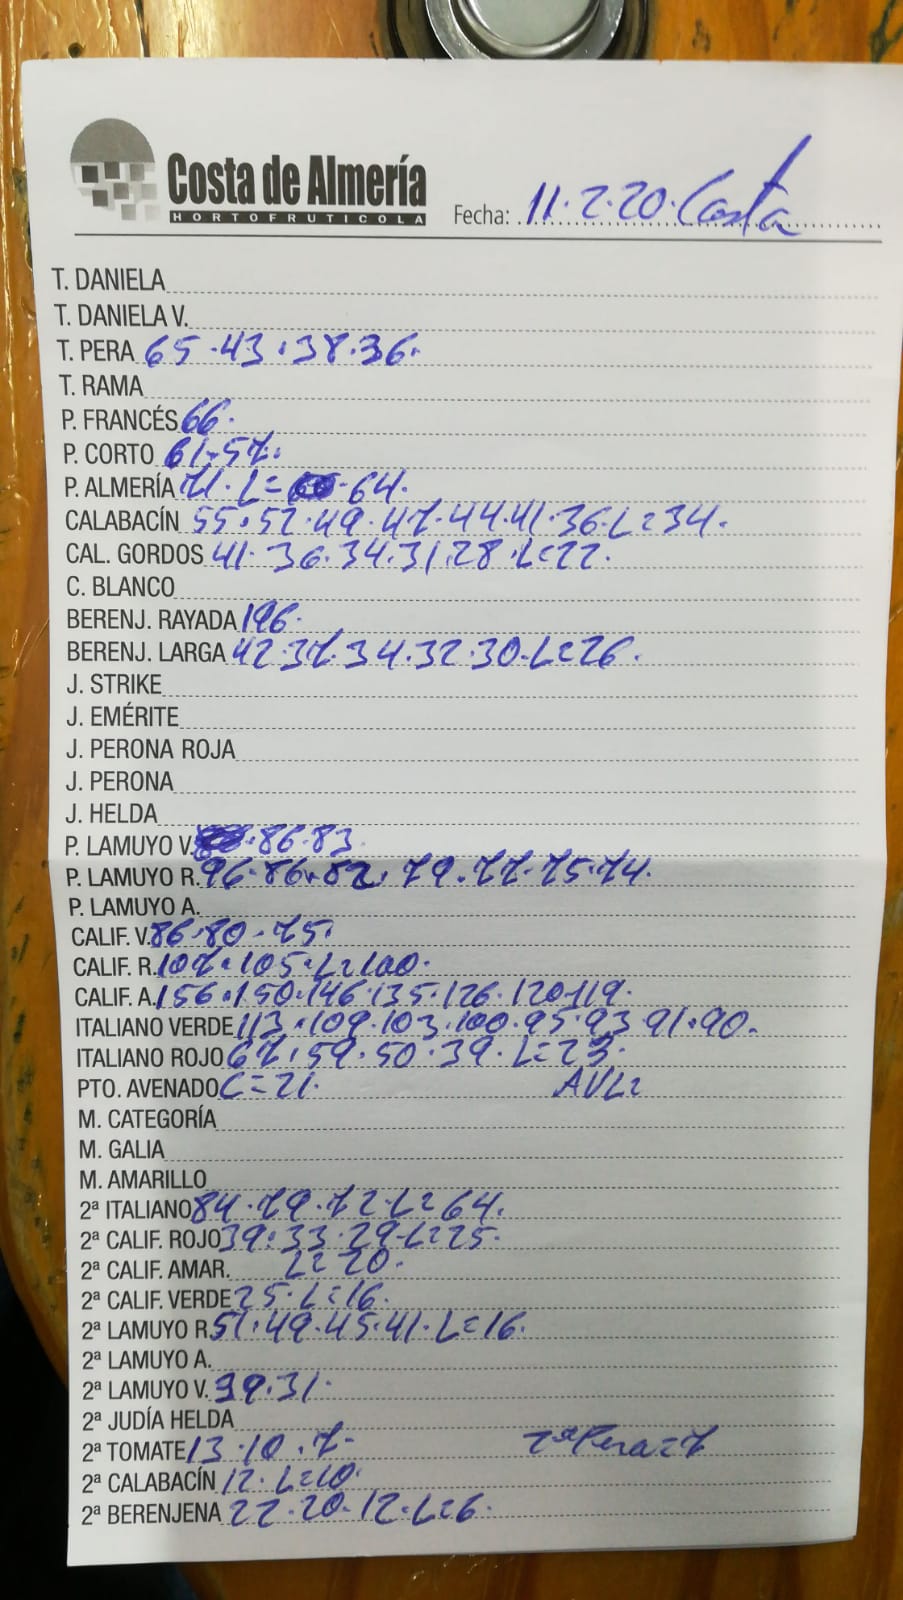 Costa de Almería
HORTOFRUTICOLA
Fecha: 11.2.20. Costa
T. DANIELA
T. DANIELA V.
T. PERA 65.43.38.36.
T. RAMA
P. FRANCÉS 66.
P. CORTO 61.57.
P. ALMERÍA 71. L= 64.
CALABACÍN 55.52.49.47.44.41.36.L=34.
CAL. GORDOS 41.36.34.31.28.L=22.
C. BLANCO
BERENJ. RAYADA 196.
BERENJ. LARGA 42.37.34.32.30.L=26.
J. STRIKE
J. EMÉRITE
J. PERONA ROJA
J. PERONA
J. HELDA
P. LAMUYO V. 86.83.
P. LAMUYO R. 96.86.82.79.77.75.74.
P. LAMUYO A.
CALIF. V. 86.80.75.
CALIF. R. 107.105.L=100.
CALIF. A. 156.150.146.135.126.120.119.
ITALIANO VERDE 113.109.103.100.95.93.91.90.
ITALIANO ROJO 67.59.50.39.L=23.
PTO. AVENADO C=21. AVL=
M. CATEGORÍA
M. GALIA
M. AMARILLO
2ª ITALIANO 84.79.72.L=64.
2ª CALIF. ROJO 39.33.29.L=25.
2ª CALIF. AMAR. L=20.
2ª CALIF. VERDE 25.L=16.
2ª LAMUYO R. 51.49.45.41.L=16.
2ª LAMUYO A.
2ª LAMUYO V. 39.31.
2ª JUDÍA HELDA
2ª TOMATE 13.10.7. 2ª Pera=7
2ª CALABACÍN 12.L=10.
2ª BERENJENA 22.20.12.L=6.